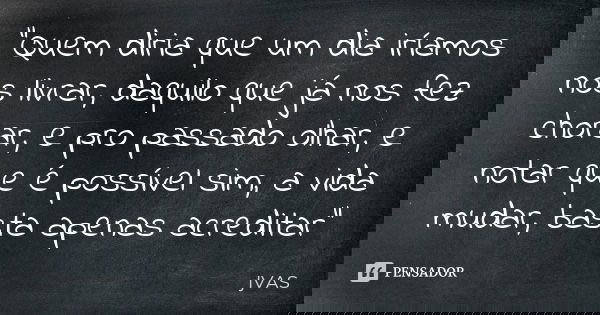 "Quem diria que um dia iríamos
nos livrar, daquilo que já nos fez
chorar, e pro passado olhar, e
notar que é possível sim, a vida
mudar, basta apenas acreditar"
PENSADOR
J'VAS